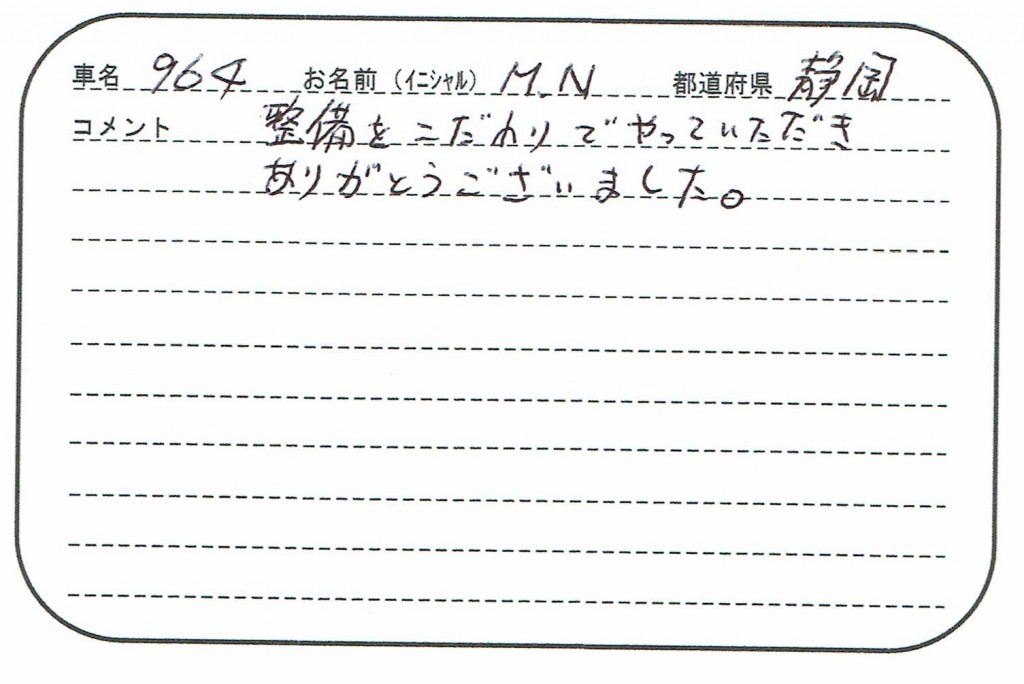 車名 964 お名前（イニシャル） M.N 都道府県 静岡
コメント 整備をこだわりでやっていただき
ありがとうございました。